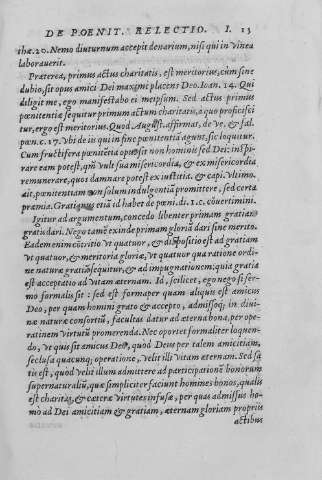 DE POENIT. RELECTIO. I. 13
thæ. 20. Nemo diuturnum accepit denarium, nisi qui in vinea
laborauerit.
Præterea, primus actus charitatis, est meritorius, cùm sine
dubio, sit opus amici Dei maximè placens Deo. Ioan. 14. Qui
diligit me, ego manifestabo ei meipsum. Sed actus primus
pœnitentiæ sequitur primum actum charitatis, à quo proficisci
tur, ergo est meritorius. Quod August. affirmat, de ve. & fal.
pœn. c. 17. Vbi de iis qui in fine pœnitentiā agunt, sic loquitur.
Cum fructifera pœnitētia opus sit non hominis sed Dei: inspi-
rare eam potest, quādo vult sua misericordia, & ex misericordia
remunerare, quos damnare potest ex iustitia. & capi. vltimo.
ait, pœnitentiam non solum indulgentiā promittere, sed certa
præmia. Gratianus etiā id habet de pœni. di. 1. c. cōuertimini.
Igitur ad argumentum, concedo libenter primam gratiam
gratis dari. Nego tamē exinde primam gloriā dari sine merito.
Eadem enim cōtritio vt quatuor, & dispositio est ad gratiam
vt quatuor, & meritoria gloriæ, vt quatuor qua ratione ordi-
ne naturæ gratiā sequitur, & ad impugnationem: quia gratia
est acceptatio ad vitam æternam. Id, scilicet, ego nego si ser-
mo formalis sit: sed est forma per quam aliquis est amicus
Deo, per quam homini grato & accepto, admissoq́; in diui-
næ naturæ consortiū, facultas datur ad æterna bona, per ope-
rationem virtutū promerenda. Nec oportet formaliter loquen-
do, vt quis sit amicus Deo, quòd Deus per talem amicitiam,
seclusa quacunq; operatione, velit illi vitam æternam. Sed sa-
tis est, quòd velit illum admittere ad participationē bonorum
supernaturaliū, quæ simpliciter faciunt homines bonos, qualis
est charitas, & cæteræ virtutes infusæ, per quas admissus ho-
mo ad Dei amicitiam & gratiam, æternam gloriam propriis
actibus